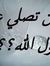 ن تصلي
ل الله؟؟